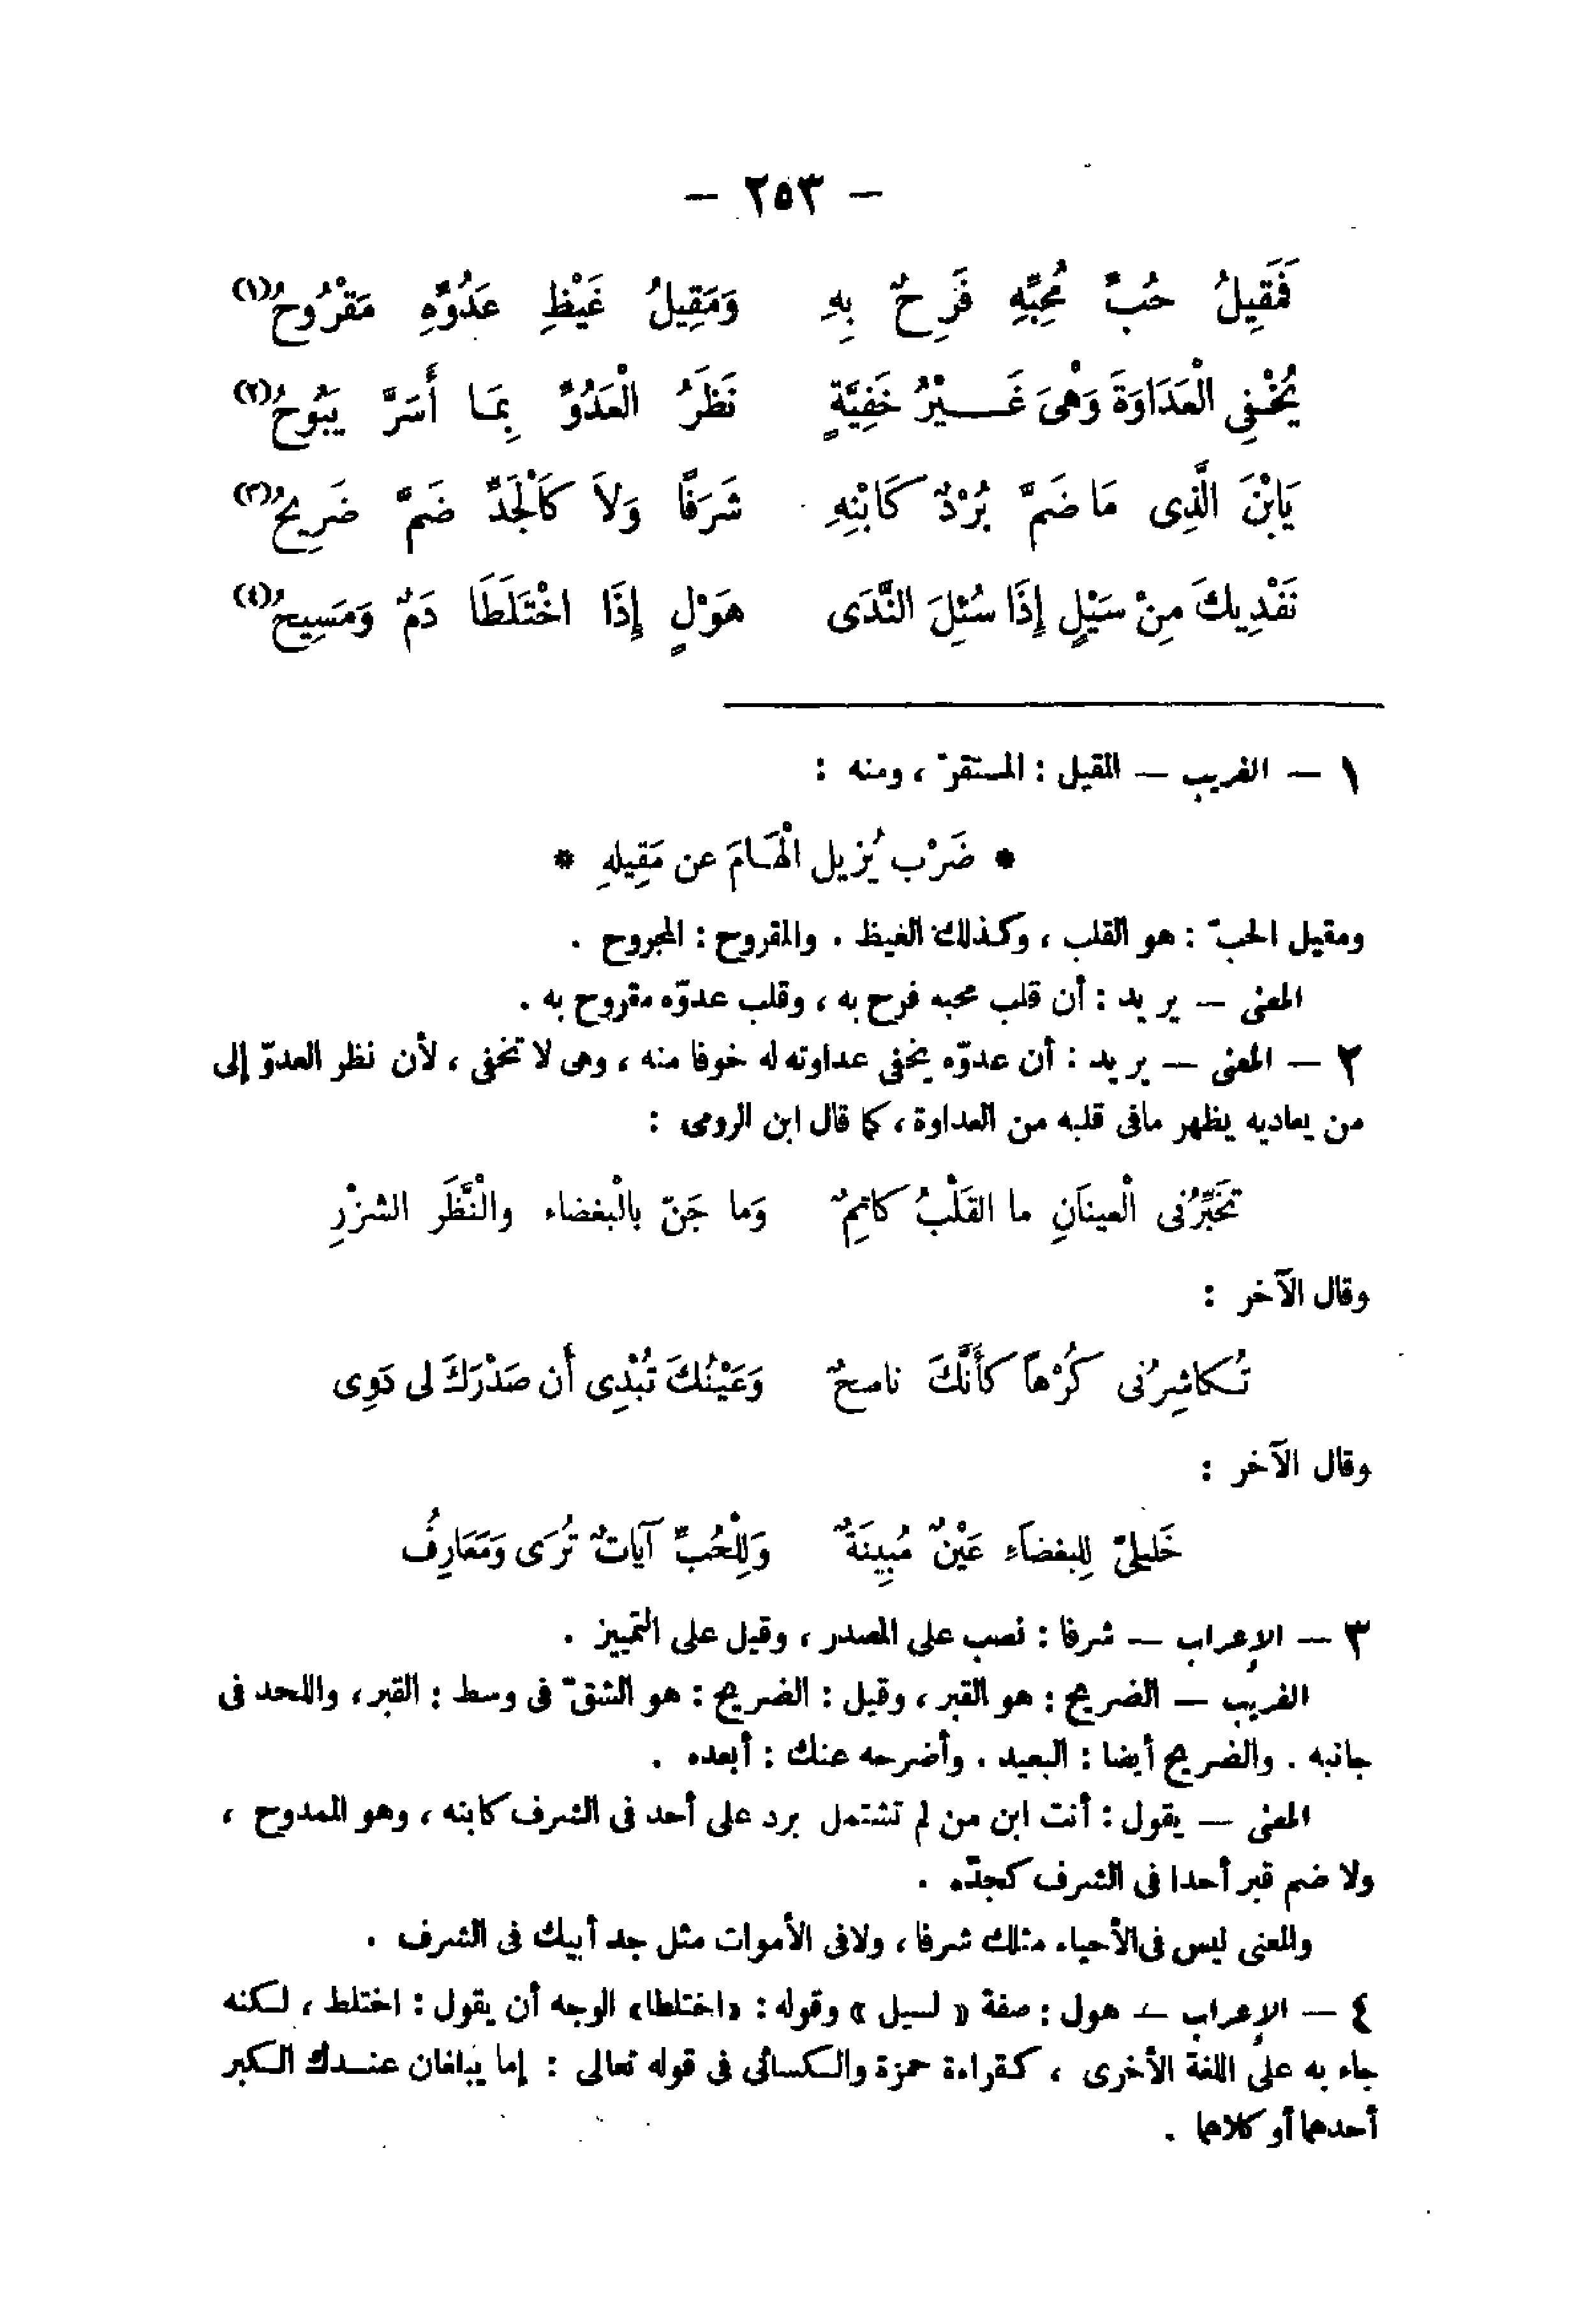 — ٢٥٣ —
فَمَقِيلُ حُبِّ مُحِبِّهِ فَرِحٌ بِهِ وَمَقِيلُ غَيْظِ عَدُوِّهِ مَقْرُوحُ(١)
يُخْفِى الْعَدَاوَةَ وَهْىَ غَيْرُ خَفِيَّةٍ نَظَرُ الْعَدُوِّ بِمَا أَسَرَّ يَبُوحُ(٢)
يَابْنَ الَّذِى مَا ضَمَّ بُرْدٌ كَابْنِهِ شَرَفًا وَلاَ كَالْجَدِّ ضَمَّ ضَرِيحُ(٣)
نَفْدِيكَ مِنْ سَيْلٍ إِذَا سُئِلَ النَّدَى هَوْلٍ إِذَا اخْتَلَطَا دَمٌ وَمَسِيحُ(٤)
١ — الغريب — المقيل : المستقرّ ، ومنه :
* ضَرْب يُزيل الْهَامَ عن مَقِيلهِ *
ومقيل الحبّ : هو القلب ، وكذلك الغيظ . والمقروح : المجروح .
المعنى — يريد : أن قلب محبه فرح به ، وقلب عدوّه مقروح به .
٢ — المعنى — يريد : أن عدوّه يخفى عداوته له خوفا منه ، وهى لا تخفى ، لأن نظر العدوّ إلى
من يعاديه يظهر مافى قلبه من العداوة ، كما قال ابن الرومى :
تخَبِّرُنى الْعينَانِ ما القَلْبُ كاتِمٌ وَما جَنّ بالْبغضاء والْنَّظَر الشزْرِ
وقال الآخر :
تُكاشِرُنى كُرْهاً كأَنَّكَ ناصحٌ وَعَيْنُكَ تُبْدِى أن صَدْرَكَ لى دَوِى
وقال الآخر :
خَليلىّ لِلبغضاَءِ عَيْنٌ مُبِينَةٌ وَلِلْحُبِّ آيَاتٌ تُرَى وَمَعَارِفُ
٣ — الإعراب — شرفا : نصب على المصدر ، وقيل على التمييز .
الغريب — الضريح : هو القبر ، وقيل : الضريح : هو الشقّ فى وسط : القبر ، واللحد فى
جانبه . والضريح أيضا : البعيد . وأضرحه عنك : أبعده .
المعنى — يقول : أنت ابن من لم تشتمل برد على أحد فى الشرف كابنه ، وهو الممدوح ،
ولا ضم قبر أحدا فى الشرف كجدّه .
والمعنى ليس فى الأحياء مثلك شرفا ، ولا فى الأموات مثل جد أبيك فى الشرف .
٤ — الإعراب — هول : صفة « لسيل » وقوله : «اختلطا» الوجه أن يقول : اختلط ، لكنه
جاء به على اللغة الأخرى ، كقراءة حمزة والكسائى فى قوله تعالى : إما يبلغان عندك الكبر
أحدهما أو كلاهما .